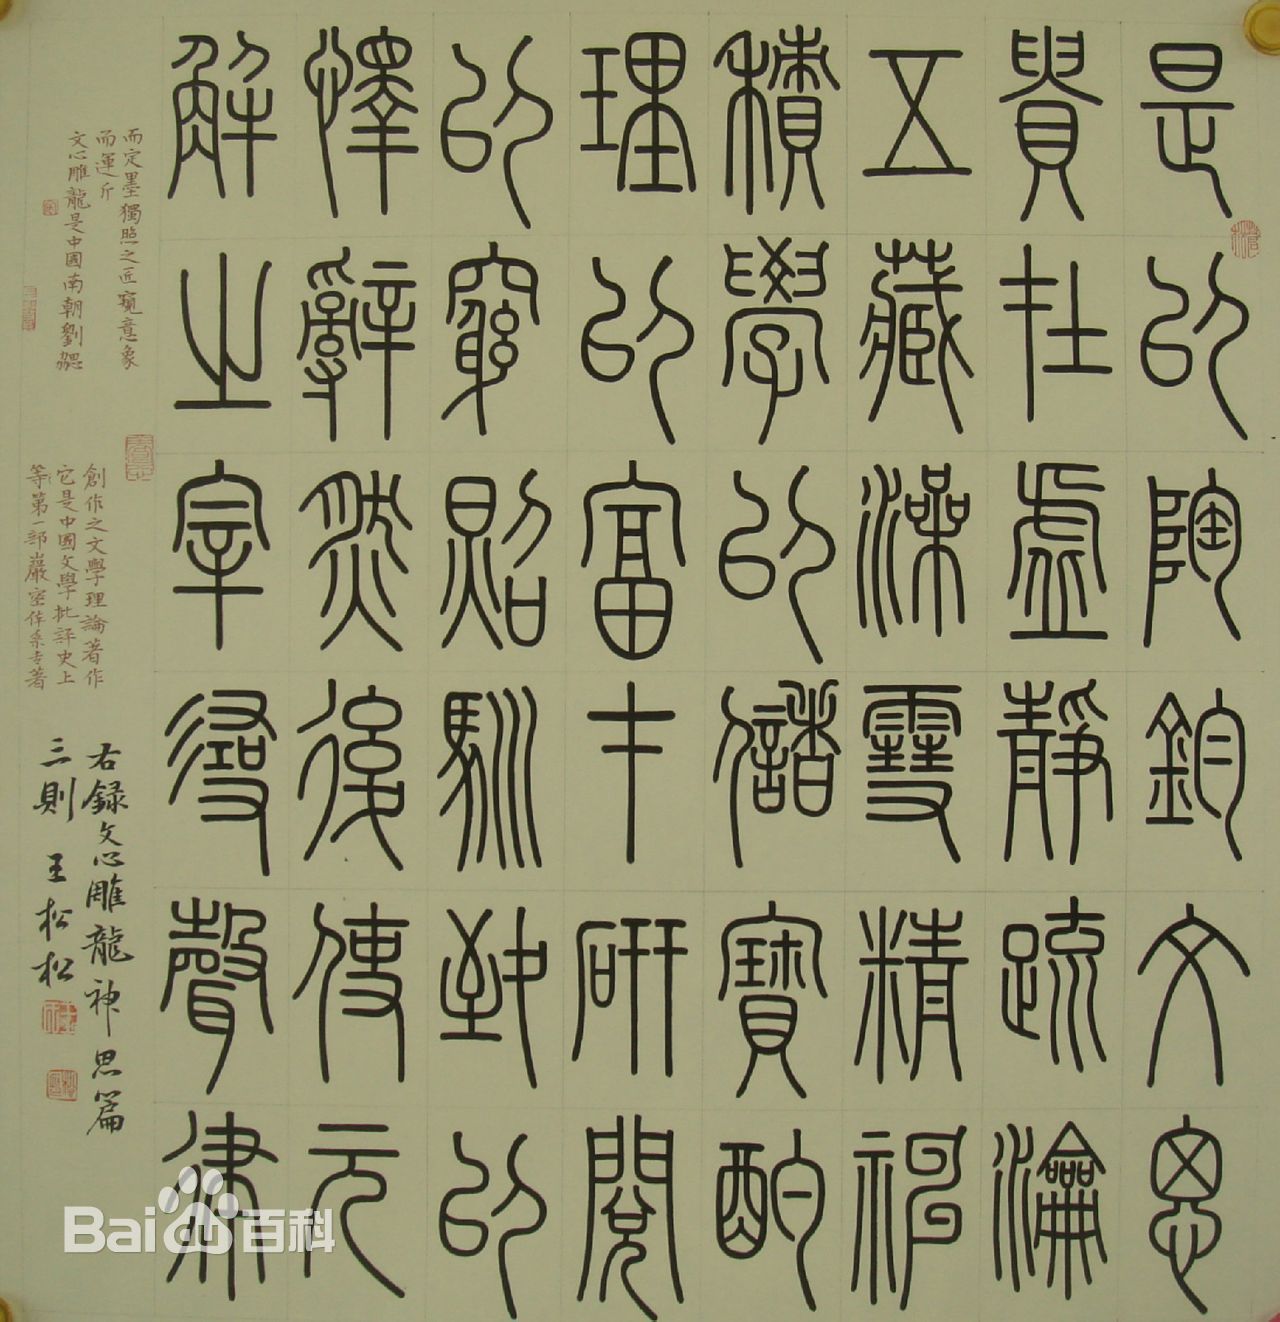 是以陶鈞文思
貴在虛靜疏瀹
五藏澡雪精神
積學以儲寶酌
理以富才研閱
以窮照馴致以
懌辭然後使元
解之宰尋聲律
而定墨獨照之匠窺意象
而運斤
文心雕龍是中國南朝劉勰
創作之文學理論著作
它是中國文學批評史上
等第一部嚴密体系专著
右録文心雕龍神思篇
三則 王松松
Bai百科